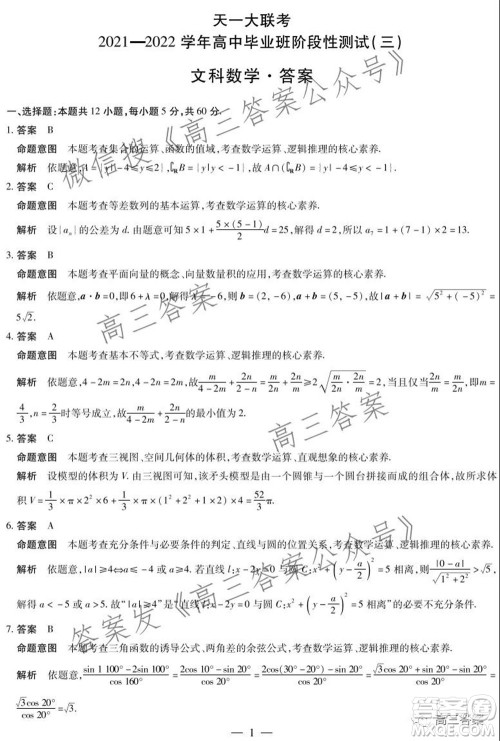 天一大联考
2021—2022 学年高中毕业班阶段性测试(三)
文科数学·答案
一、选择题:本题共 12 小题,每小题 5 分,共 60 分.
1. 答案 B
命题意图 本题考查集合的运算、函数的值域,考查数学运算、逻辑推理的核心素养.
解析 依题意,A={y|-4≤y≤2},
2. 答案 C
命题意图 本题考查等差数列的基本运算,考查数学运算的核心素养.
解析 设{aₙ}的公差为 d. 由题意可知 5×1+5×(5-1)/2 d=25,解得 d=2,所以 a₇=1+(7-1)×2=13.
3. 答案 B
命题意图 本题考查平面向量的概念、向量数量积的应用,考查数学运算的核心素养.
解析 依题意,a·b=0,即 6+λ=0,解得 λ=-6,则 b=(2,-6),a+b=(5,-5),故|a+b|=√(5²+(-5)²)=
5√2.
4. 答案 A
命题意图 本题考查基本不等式,考查数学运算、逻辑推理的核心素养.
解析 依题意,4-2m=2n,4-2n=2m,故 m/(4-2m)+2n/(2-n)=m/2n+2n/m≥2√(m/2n·2n/m)=2,当且仅当 m/2n=2n/m,即 m=
4/3,n=2/3 时等号成立,故 m/(4-2m)+2n/(2-n) 的最小值为 2.
5. 答案 C
命题意图 本题考查三视图、空间几何体的体积,考查数学运算、直观想象的核心素养.
解析 设模型的体积为 V. 由三视图可知,该矛头模型是由一个圆锥与一个圆台拼接而成的组合体,故所求体
积 V=1/3×π×2²×6+1/3×π×(2²+1²+2×1)×4=52/3 π.
6. 答案 A
命题意图 本题考查充分条件与必要条件的判定、直线与圆的位置关系,考查数学运算、逻辑推理的核心素养.
解析 依题意,|a|≥4⇔a≤-4 或 a≥4. 若直线 l:x-2y=0 与圆 C:x²+(y-a/2)²=5 相离,则 |0-a|/√(1²+2²)>√5,
解得 a<-5 或 a>5. 故“|a|≥4”是“直线 l:x-2y=0 与圆 C:x²+(y-a/2)²=5 相离”的必要不充分条件.
7. 答案 B
命题意图 本题考查三角函数的诱导公式、两角差的余弦公式,考查数学运算、逻辑推理的核心素养.
解析 依题意,(sin 1 100°-2sin 100°)/cos 160°=(2cos 10°-sin 20°)/cos 20°=(2cos(30°-20°)-sin 20°)/cos 20°=(√3cos 20°+sin 20°-sin 20°)/cos 20°=
√3cos 20°/cos 20°=√3.
— 1 —
微信搜《高三答案公众号》
高三答案
高三答案
答案发《高三答案公众号》
高三答案